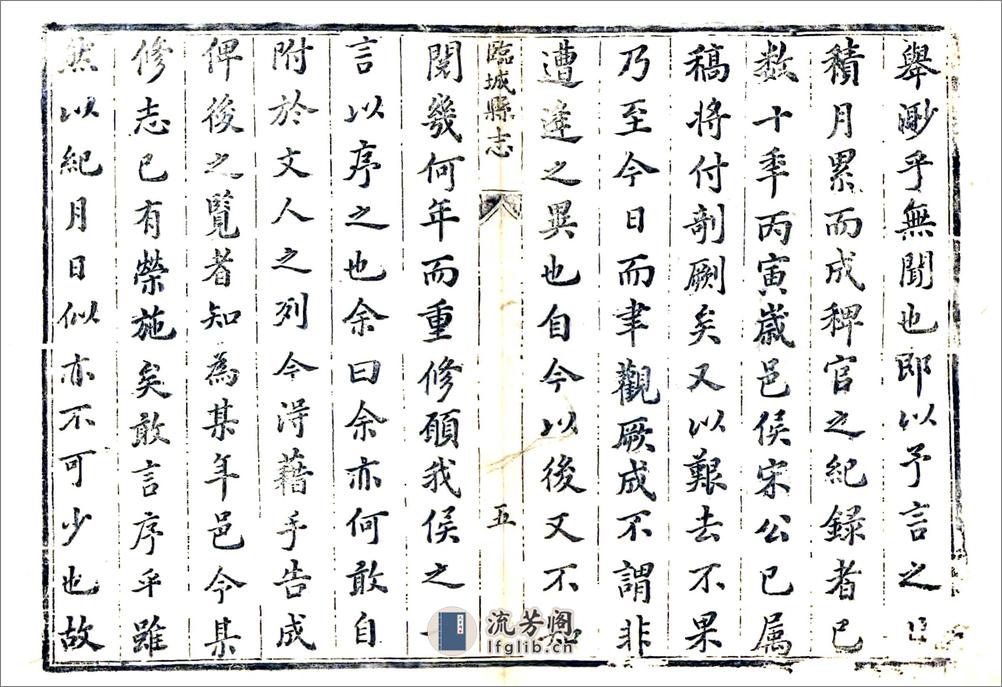 舉渺乎無聞也即以予言之
積月累而成稗官之紀録者已
数十年丙寅歲邑侯宋公已属
稿將付剞劂矣又以艱去不果
乃至今日而聿觀厥成不謂非
遭逢之異也自今以後又不知
臨城縣志
五
閱幾何年而重修頋我侯之一
言以序之也余曰余亦何敢自
附於文人之列今淂藉手告成
俾後之覽者知為某年邑令某
修志已有榮施矣敢言序乎雖
然以紀月日似亦不可少也故
流芳阁
lfglib.cn